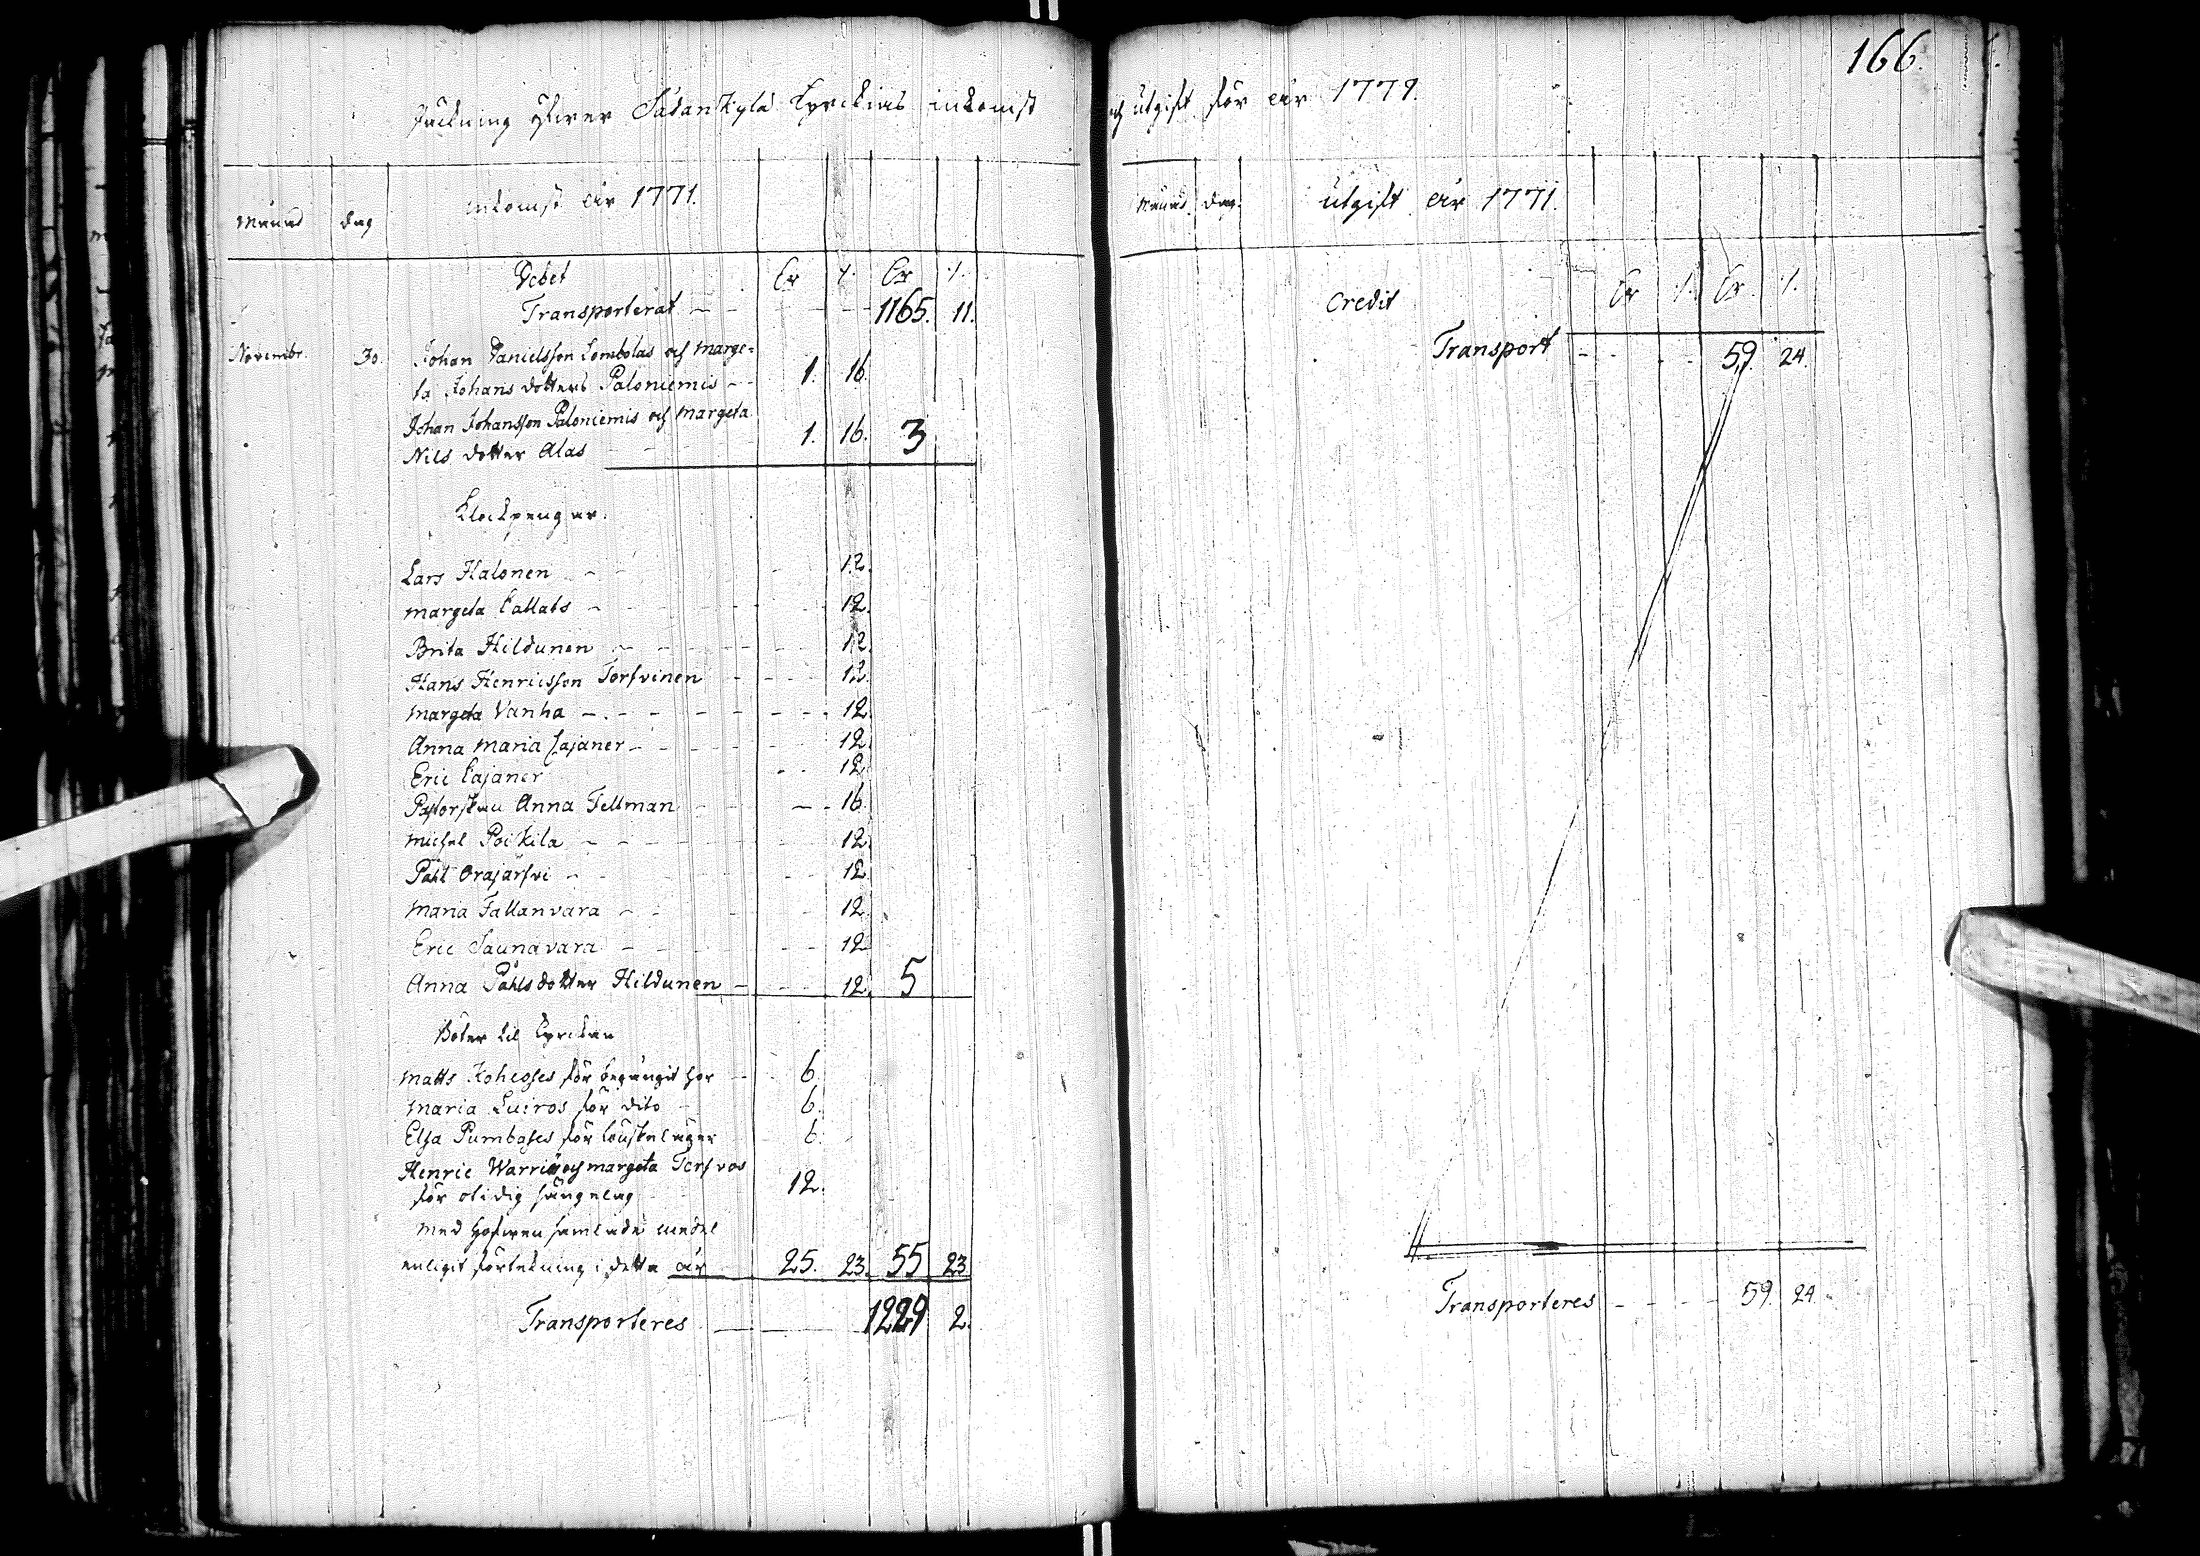 166.
Räckning öfver Sådankylä kyrckias inkomst och utgift för år 1771.
Månad dag inkomst år 1771.
Debet Cr /. Cr /.
Transporterat - - - - 1165. 11.
Novembr. 30. Johan Danielsson Lombolas och Marge=
ta Johans dotters Paloniemis - - 1. 16.
Johan Johansson Paloniemis och Margeta
Nils dotter Alas - - 1. 16. 3
Klockpengar.
Lars Halonen - - 12.
Margeta - - 12.
Brita Hildunen - - 12.
Hans Henricsson Torfvinen - - 12.
Margeta Vanha - - 12.
Anna Maria Cajaner - - 12.
Eric Cajaner - - 12.
Pastorskan Anna Fellman - - 16.
Michel Poikila - - 12.
Påhl Orajärfvi - - 12.
Maria Tallanvara - - 12.
Eric Saunavara - - 12
Anna Påhlsdotter Hildunen - - 12. 5
Böter til kyrckan
Matts för begångit hor - 6.
Maria Luiros för dito - 6.
Elsa Pumbases för lönskaläger 6.
Henric och Margeta
för otidig sängelag 12.
Med Hofven samlade medel
enligit förtekning i detta år 25. 23. 55 23
Transporteres 1229 2.
Månad. dag. utgift år 1771.
Credit Cr /. Cr. /.
Transport - - - 59. 24.
Transporteres - - - - 59. 24.